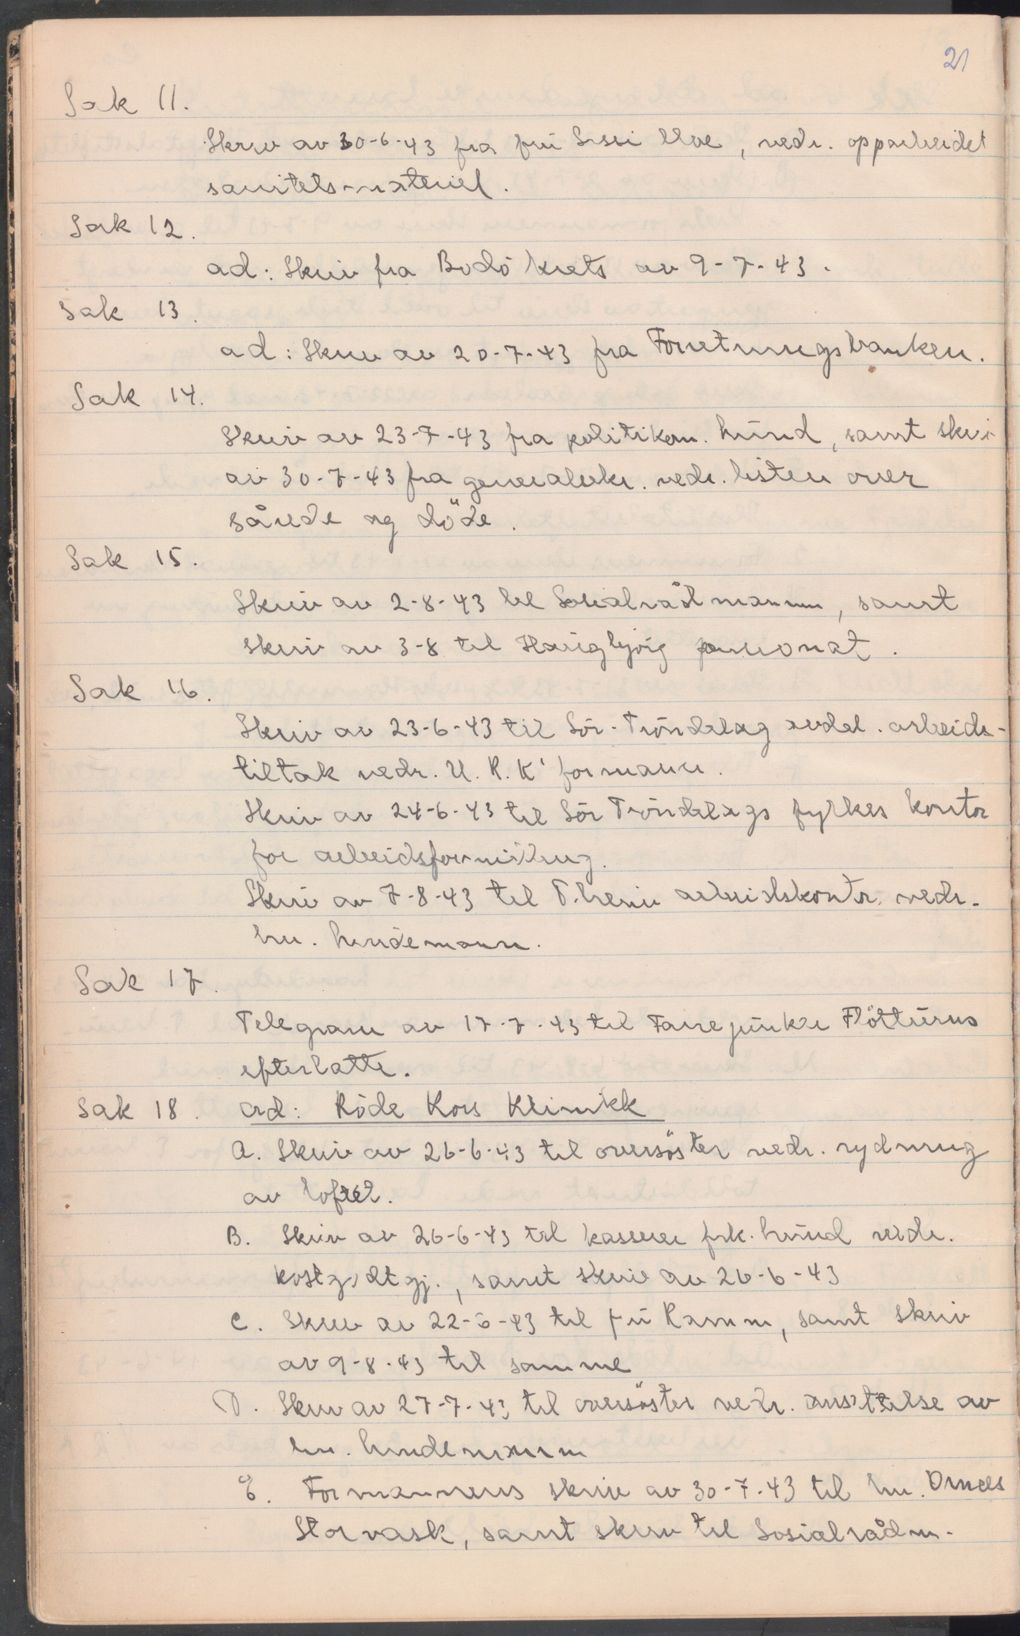 21
Sak 11.
Skriv av 30-6-43 fra fru Sissi Moe, vedr. opparbeidet
sanitets-materiel.
Sak 12.
ad: Skriv fra Bodö krets av 9-7-43.
Sak 13.
ad: Skriv av 20-7-43 fra Forretningsbanken.
Sak 14.
Skriv av 23-7-43 fra politikam. Lund, samt skriv
av 30-7-43 fra generalsekr. vedr. listen over
sårede og döde.
Sak 15.
Skriv av 2-8-43 til Sosialrådmannen, samt
skriv av 3-8 til pensionat.
Sak 16.
Skriv av 23-6-43 til Sör-Tröndelag avdel. arbeids-
tiltak vedr. U.R.K' formann.
Skriv av 24-6-43 til Sör Tröndelags fylkes kontor
for arbeidsformidling.
Skriv av 7-8-43 til T.heim arbeidskontor vedr.
hr. Lindemann.
Sak 17.
Telegram av 17-7-43 til
efterlatte.
Sak 18. ad: Röde Kors Klinikk
A. Skriv av 26-6-43 til oversöster vedr. rydning
av loftet.
B. Skriv av 26-6-43 til kasserer frk. Lund vedr.
kostgodtgj., samt skriv av 26-6-43
C. Skriv av 22-6-43 til fru Ramm, samt skriv
av 9-8-43 til samme
D. Skriv av 27-7-43 til oversöster vedr. ansettelse av
hr. Lindemann
E. Formannens skriv av 30-7-43 til hr. Ornees
Storvask, samt skriv til Sosialrådm.